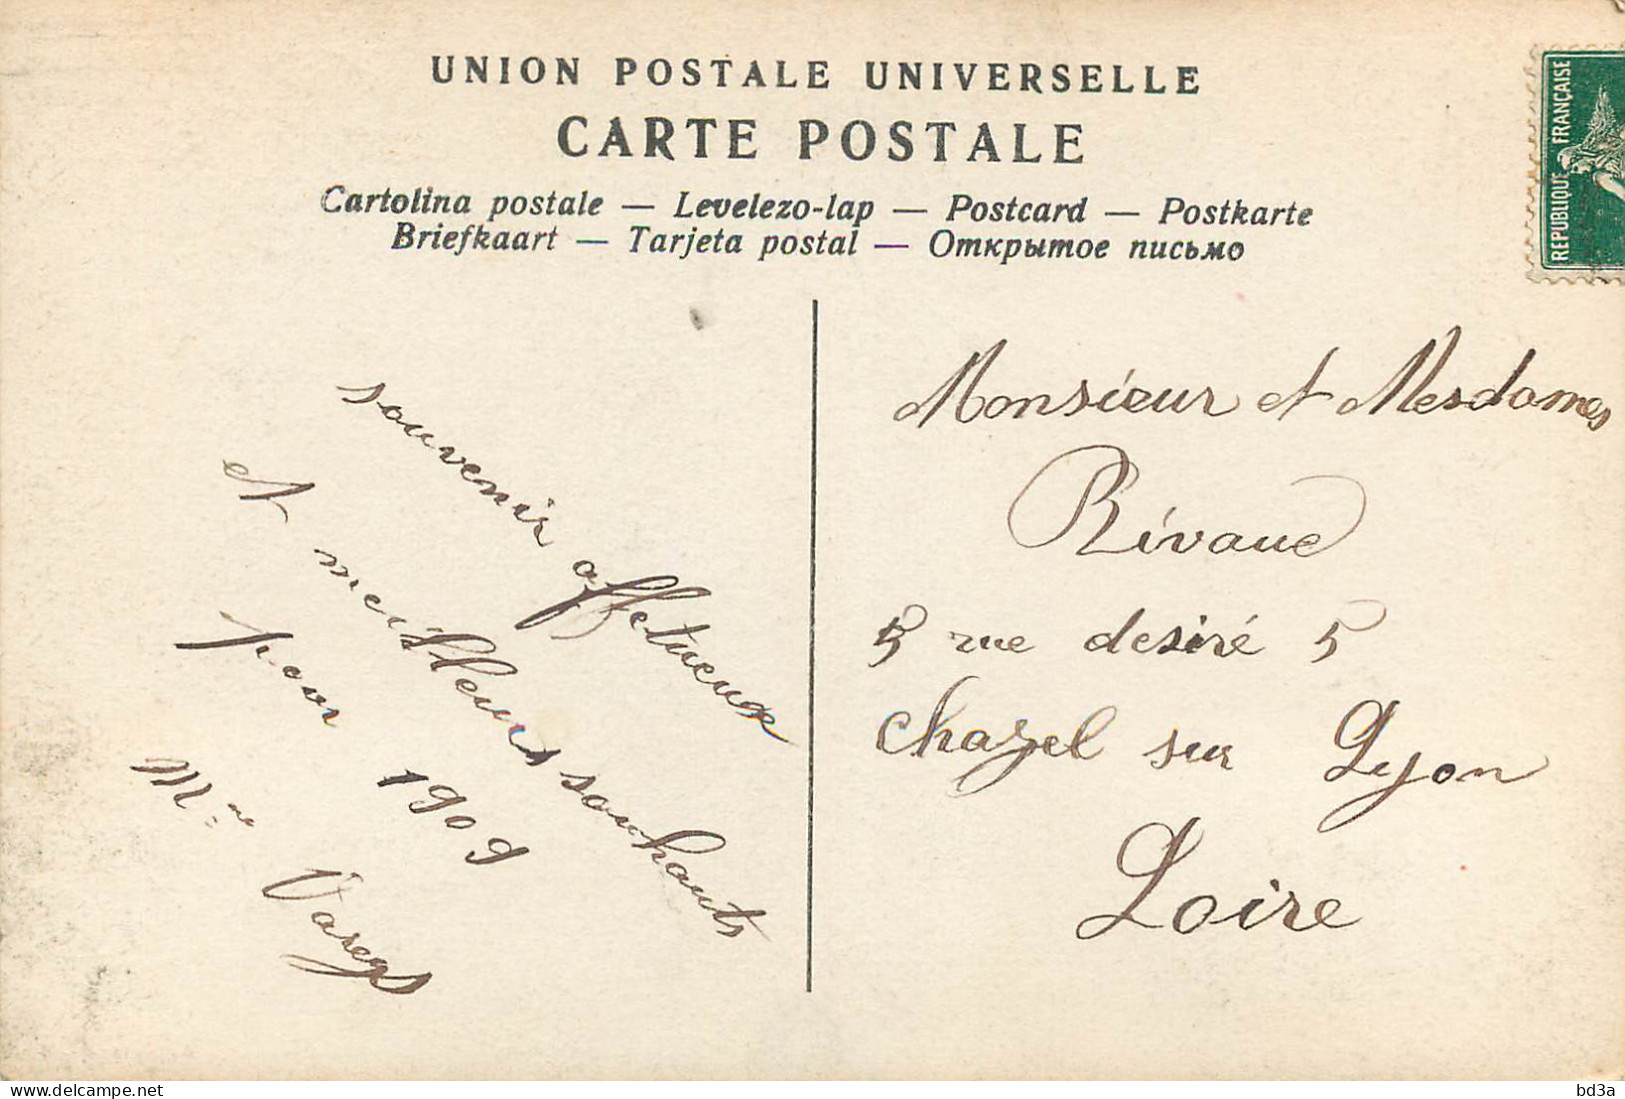 UNION POSTALE UNIVERSELLE
CARTE POSTALE
Cartolina postale — Levelezo-lap — Postcard — Postkarte
Briefkaart — Tarjeta postal — Открытое письмо
REPUBLIQUE FRANÇAISE
souvenir affetueux
et meilleurs souhaits
pour 1909
Mme
Monsieur et Mesdames
Rivaue
5 rue desiré 5
Chazel sur Lyon
Loire
www.delcampe.net
bd3a